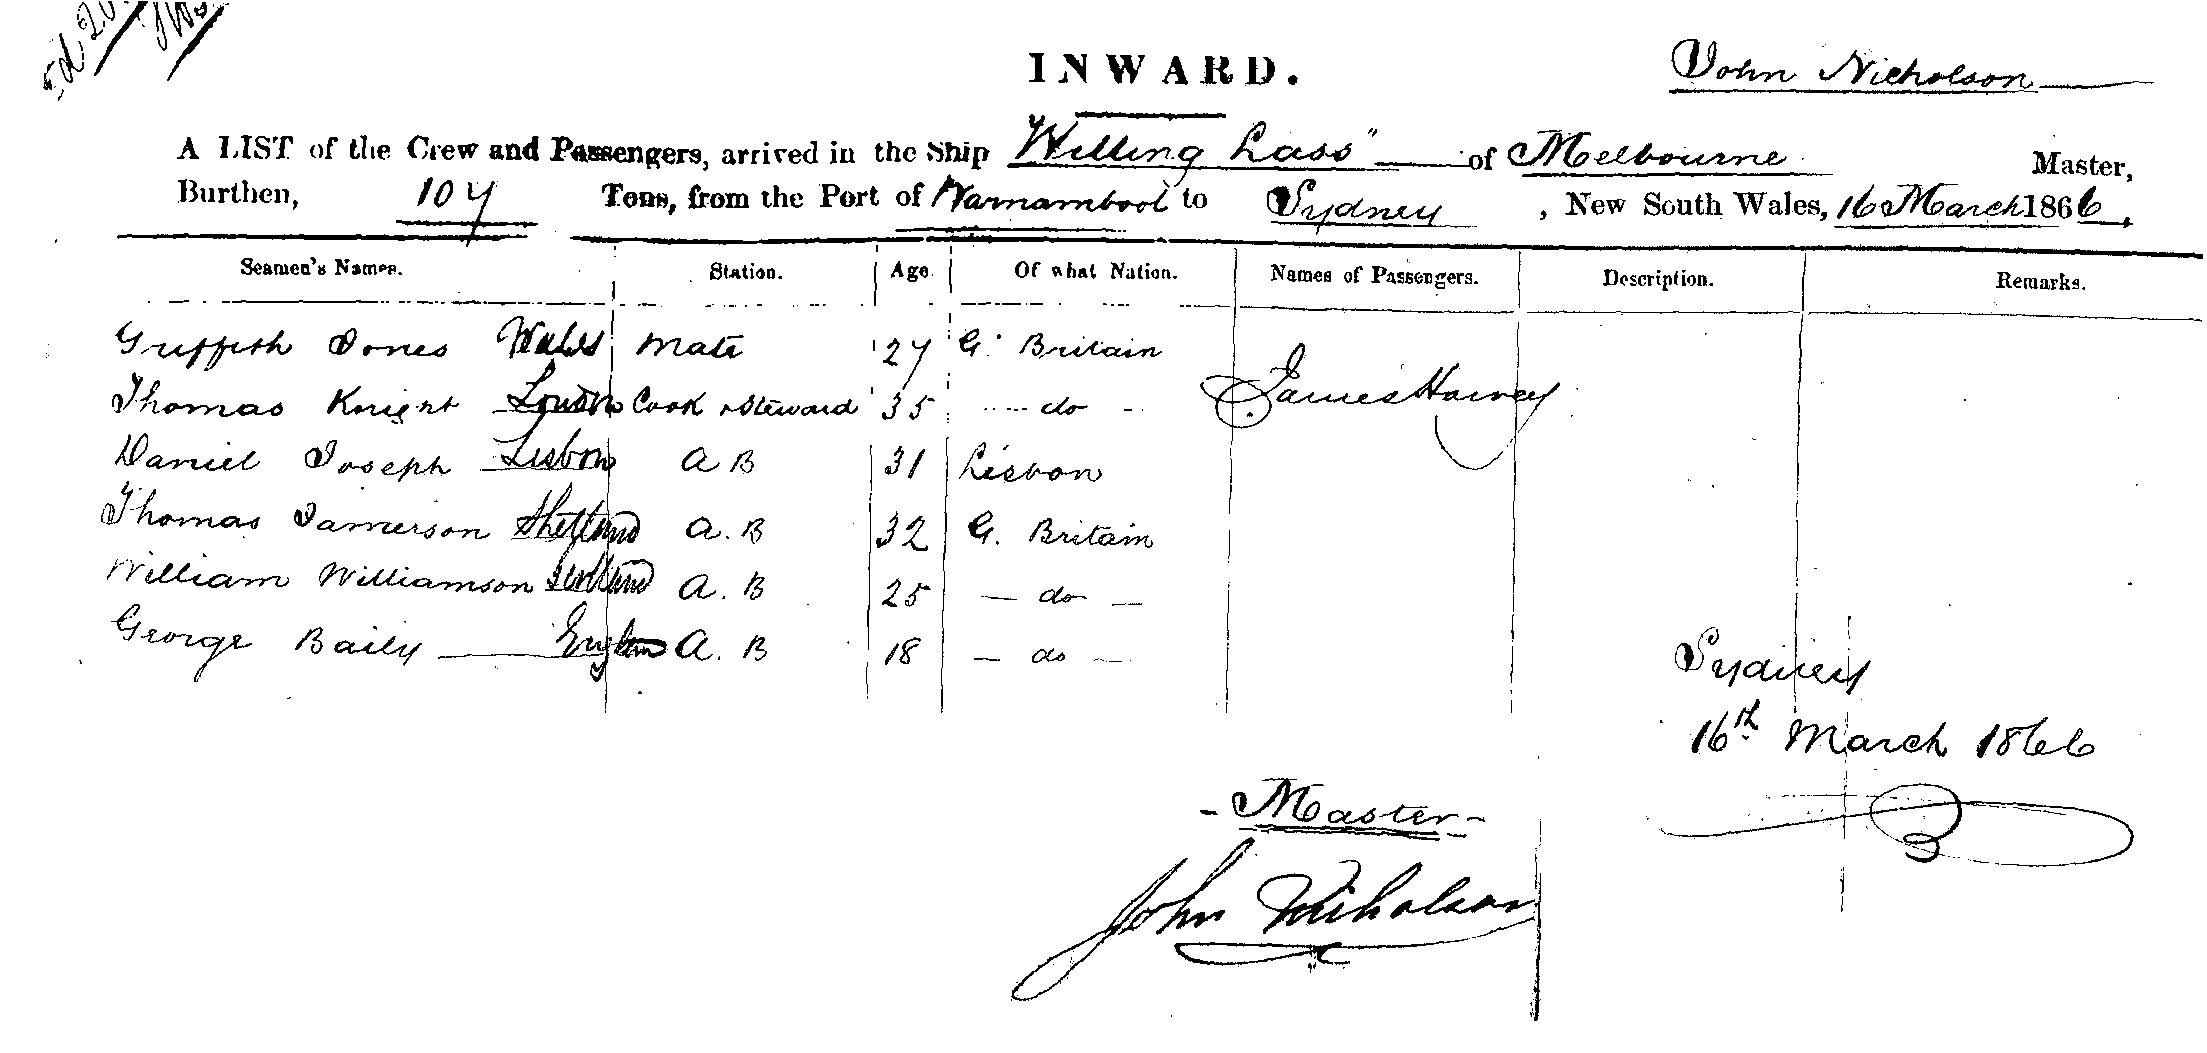 INWARD.
John Nicholson
A LIST of the Crew and Passengers, arrived in the Ship "Willing Lass" of Melbourne Master,
Burthen, 107 Tons, from the Port of Warnambool to Sydney, New South Wales, 16 March 1866.
Seamen's Names. Station. Age. Of what Nation. Names of Passengers. Description. Remarks.
Griffith Jones Wales Mate 27 G. Britain
Thomas Knight London Cook & Steward 35 do James Harvey
Daniel Joseph Lisbon A B 31 Lisbon
Thomas Jamerson Shetland A. B 32 G. Britain
William Williamson A. B 25 do
George Baily A. B 18 do
Sydney
16th March 1866
Master
John Nicholson